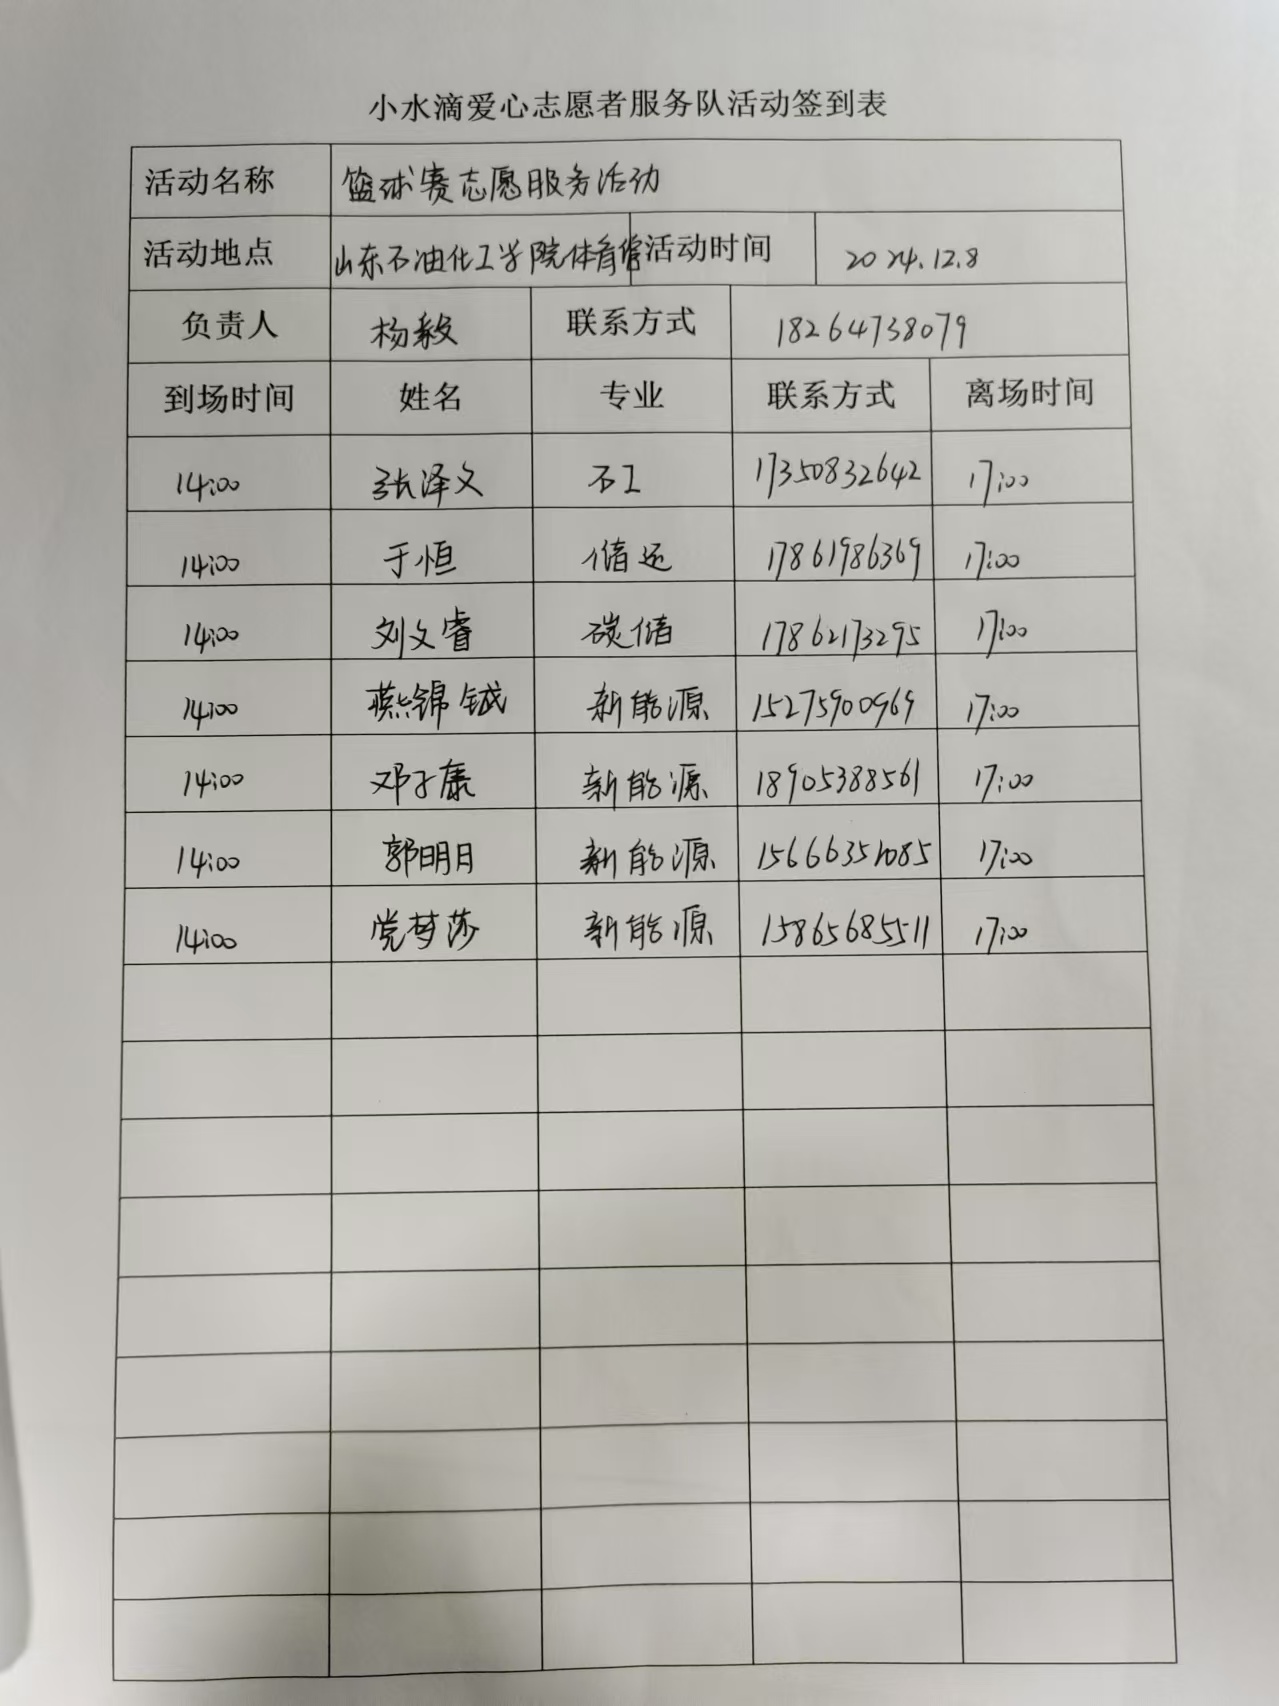 小水滴爱心志愿者服务队活动签到表
活动名称 篮球赛志愿服务活动
活动地点 山东石油化工学院体育馆 活动时间 2024.12.8
负责人 杨毅 联系方式 18264738079
到场时间 姓名 专业 联系方式 离场时间
14:00 张泽文 石工 17350832642 17:00
14:00 于恒 储运 17861986369 17:00
14:00 刘文睿 碳储 17862173295 17:00
14:00 燕锦铖 新能源 15275900969 17:00
14:00 邓子康 新能源 18905388561 17:00
14:00 郭明月 新能源 17:00
14:00 党梦莎 新能源 15865685511 17:00